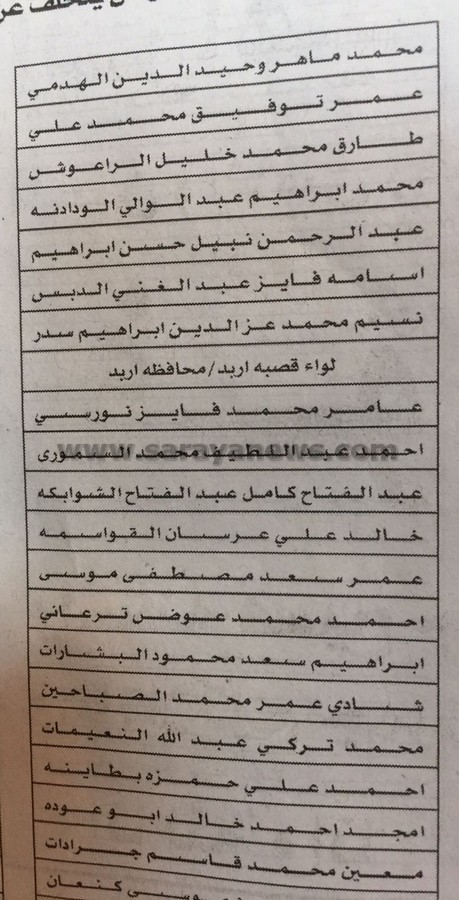 يتخلف
محمد ماهر وحيد الدين الهدمي
عمر توفيق محمد علي
طارق محمد خليل الراعوش
محمد ابراهيم عبد الوالي الودادنه
عبد الرحمن نبيل حسن ابراهيم
اسامه فايز عبد الغني الدبس
نسيم محمد عز الدين ابراهيم سدر
لواء قصبه اربد/محافظه اربد
عامر محمد فايز نورسي
احمد عبد اللطيف محمد السمورى
www.sarayanews.com
عبد الفتاح كامل عبد الفتاح الشوابكه
خالد علي عرسان القواسمه
عمر سعد مصطفى موسى
احمد محمد عوض ترعاني
ابراهيم سعد محمود البشارات
شادي عمر محمد الصباحين
محمد تركي عبد الله النعيمات
احمد علي حمزه بطاينه
امجد احمد خالد ابو عوده
معين محمد قاسم جرادات
موسى كنعان